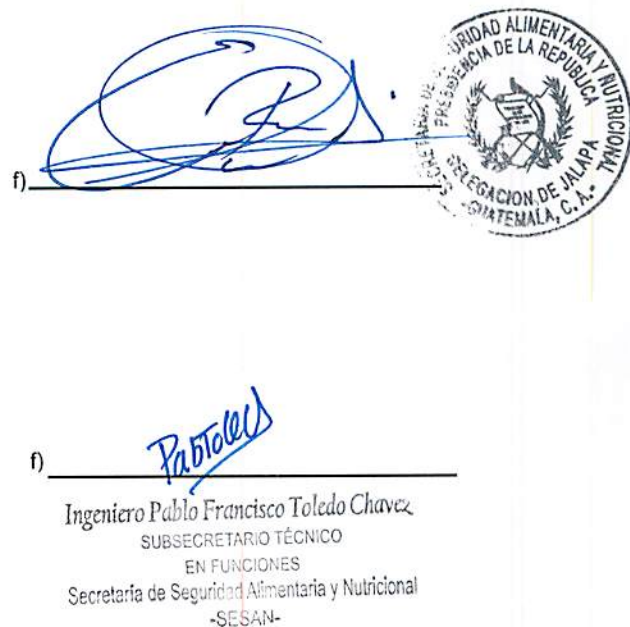 SECRETARIA DE SEGURIDAD ALIMENTARIA Y NUTRICIONAL
PRESIDENCIA DE LA REPUBLICA
DELEGACION DE JALAPA
-GUATEMALA, C. A.-
f)
f)
PabToled
Ingeniero Pablo Francisco Toledo Chavez
SUBSECRETARIO TÉCNICO
EN FUNCIONES
Secretaría de Seguridad Alimentaria y Nutricional
-SESAN-